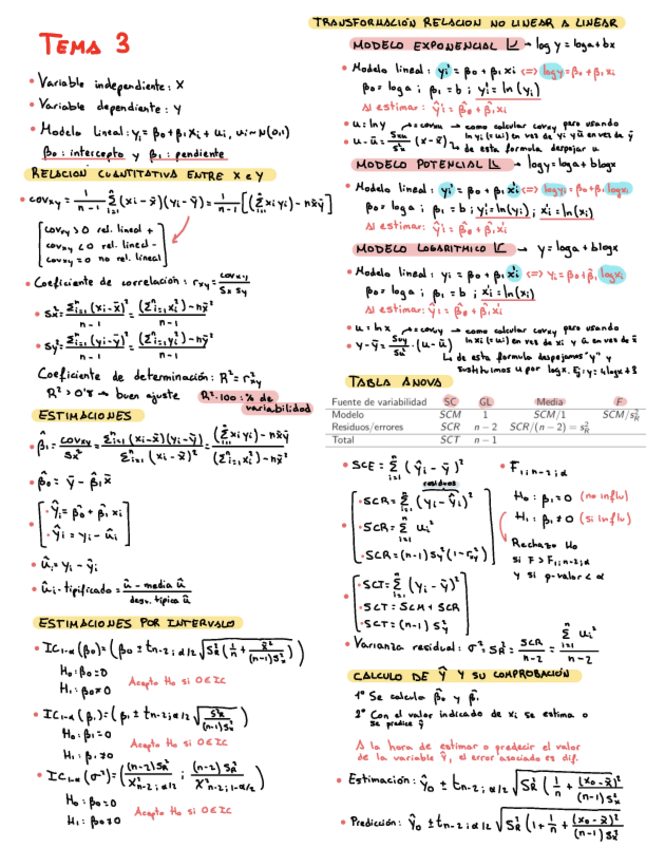 TEMA 3
• Variable independiente: X
• Variable dependiente: Y
• Modelo lineal: yᵢ = β₀ + β₁xᵢ + uᵢ, uᵢ ~ N(0,1)
β₀: intercepto y β₁: pendiente
RELACION CUANTITATIVA ENTRE X e Y
• covxy = 1/(n-1) Σⁿᵢ₌₁ (xᵢ - x̄)(yᵢ - ȳ) = 1/(n-1) [(Σⁿᵢ₌₁ xᵢyᵢ) - nx̄ȳ]
covxy > 0 rel. lineal +
covxy < 0 rel. lineal -
covxy = 0 no rel. lineal
• Coeficiente de correlación: rxy = covxy / (Sx Sy)
• Sx² = Σⁿᵢ₌₁(xᵢ - x̄)² / (n-1) = (Σⁿᵢ₌₁xᵢ²) - nx̄² / (n-1)
• Sy² = Σⁿᵢ₌₁(yᵢ - ȳ)² / (n-1) = (Σⁿᵢ₌₁yᵢ²) - nȳ² / (n-1)
Coeficiente de determinación: R² = r²xy
R² > 0'8 → buen ajuste R²·100: % de variabilidad
ESTIMACIONES
• β̂₁ = covxy / Sx² = Σⁿᵢ₌₁(xᵢ - x̄)(yᵢ - ȳ) / Σⁿᵢ₌₁(xᵢ - x̄)² = (Σⁿᵢ₌₁ xᵢyᵢ) - nx̄ȳ / (Σⁿᵢ₌₁xᵢ²) - nx̄²
• β̂₀ = ȳ - β̂₁x̄
• ŷᵢ = β̂₀ + β̂₁xᵢ
• ŷᵢ = yᵢ - ûᵢ
• ûᵢ = yᵢ - ŷᵢ
• ûᵢ - tipificado = (û - media û) / desv. típica û
ESTIMACIONES POR INTERVALO
• IC₁₋α(β₀) = (β₀ ± tn-2;α/2 √(S²R(1/n + x̄²/((n-1)S²x))))
H₀: β₀ = 0
H₁: β₀ ≠ 0
Acepto H₀ si 0 ∈ IC
• IC₁₋α(β₁) = (β₁ ± tn-2;α/2 √(S²R/((n-1)S²x)))
H₀: β₁ = 0
Acepto H₀ si 0 ∈ IC
H₁: β₁ ≠ 0
• IC₁₋α(σ²) = ((n-2)S²R / χ²n-2;α/2 ; (n-2)S²R / χ²n-2;1-α/2)
H₀: β₀ = 0
Acepto H₀ si 0 ∈ IC
H₁: β₀ ≠ 0
TRANSFORMACIÓN RELACION NO LINEAR A LINEAR
MODELO EXPONENCIAL → log y = loga + bx
• Modelo lineal: yᵢ' = β₀ + β₁xᵢ <=> logy = β₀ + β₁xᵢ
β₀ = loga ; β₁ = b ; yᵢ' = ln(yᵢ)
Al estimar: ŷᵢ' = β̂₀ + β̂₁xᵢ
• u = lny → como calcular covxy pero usando
ln yᵢ (=uᵢ) en vez de yᵢ y ū en vez de ȳ
• u - ū = Sxu/S²x (x - x̄) ↳ de esta formula despejar u
MODELO POTENCIAL → logy = loga + blogx
• Modelo lineal: yᵢ' = β₀ + β₁xᵢ' <=> logyᵢ = β₀ + β₁logxᵢ
β₀ = loga ; β₁ = b ; yᵢ' = ln(yᵢ) ; xᵢ' = ln(xᵢ)
Al estimar: ŷᵢ' = β̂₀ + β̂₁xᵢ'
MODELO LOGARITMICO → y = loga + blogx
• Modelo lineal: yᵢ = β₀ + β₁xᵢ' <=> yᵢ = β₀ + β₁logxᵢ
β₀ = loga ; β₁ = b ; xᵢ' = ln(xᵢ)
Al estimar: ŷᵢ = β̂₀ + β̂₁xᵢ'
• u = lnx → covuy → como calcular covxy pero usando
ln xᵢ (=uᵢ) en vez de xᵢ y ū en vez de x̄
• y - ȳ = Suy/Su² · (u - ū)
↳ de esta formula despejamos "y" y
sustituimos u por logx. Ej: y = 4logx + 3
TABLA ANOVA
Fuente de variabilidad SC GL Media F
Modelo SCM 1 SCM/1 SCM/s²R
Residuos/errores SCR n − 2 SCR/(n − 2) = s²R
Total SCT n − 1
• SCE = Σⁿᵢ₌₁ (ŷᵢ - ȳ)²
residuos
• SCR = Σⁿᵢ₌₁ (yᵢ - ŷᵢ)²
• SCR = Σⁿᵢ₌₁ uᵢ²
• SCR = (n-1)Sy²(1 - r²xy)
• SCT = Σⁿᵢ₌₁ (yᵢ - ȳ)²
• SCT = SCM + SCR
• SCT = (n-1) S²y
• F₁;n-2;α
H₀: β₁ = 0 (no influ)
H₁: β₁ ≠ 0 (si influ)
Rechazo H₀
si F > F₁;n-2;α
y si p-valor < α
• Varianza residual: σ² = S²R = SCR/(n-2) = Σⁿᵢ₌₁ uᵢ² / (n-2)
CALCULO DE Ŷ Y SU COMPROBACIÓN
1º Se calcula β̂₀ y β̂₁
2º Con el valor indicado de xᵢ se estima o
se predice ŷ
A la hora de estimar o predecir el valor
de la variable Ŷ, el error asociado es dif.
• Estimación: ŷ₀ ± tn-2;α/2 √(S²R (1/n + (x₀ - x̄)²/((n-1)S²x)))
• Predicción: ŷ₀ ± tn-2;α/2 √(S²R (1 + 1/n + (x₀ - x̄)²/((n-1)S²x)))